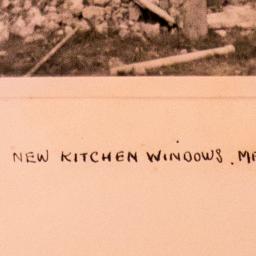 NEW KITCHEN WINDOWS. ME